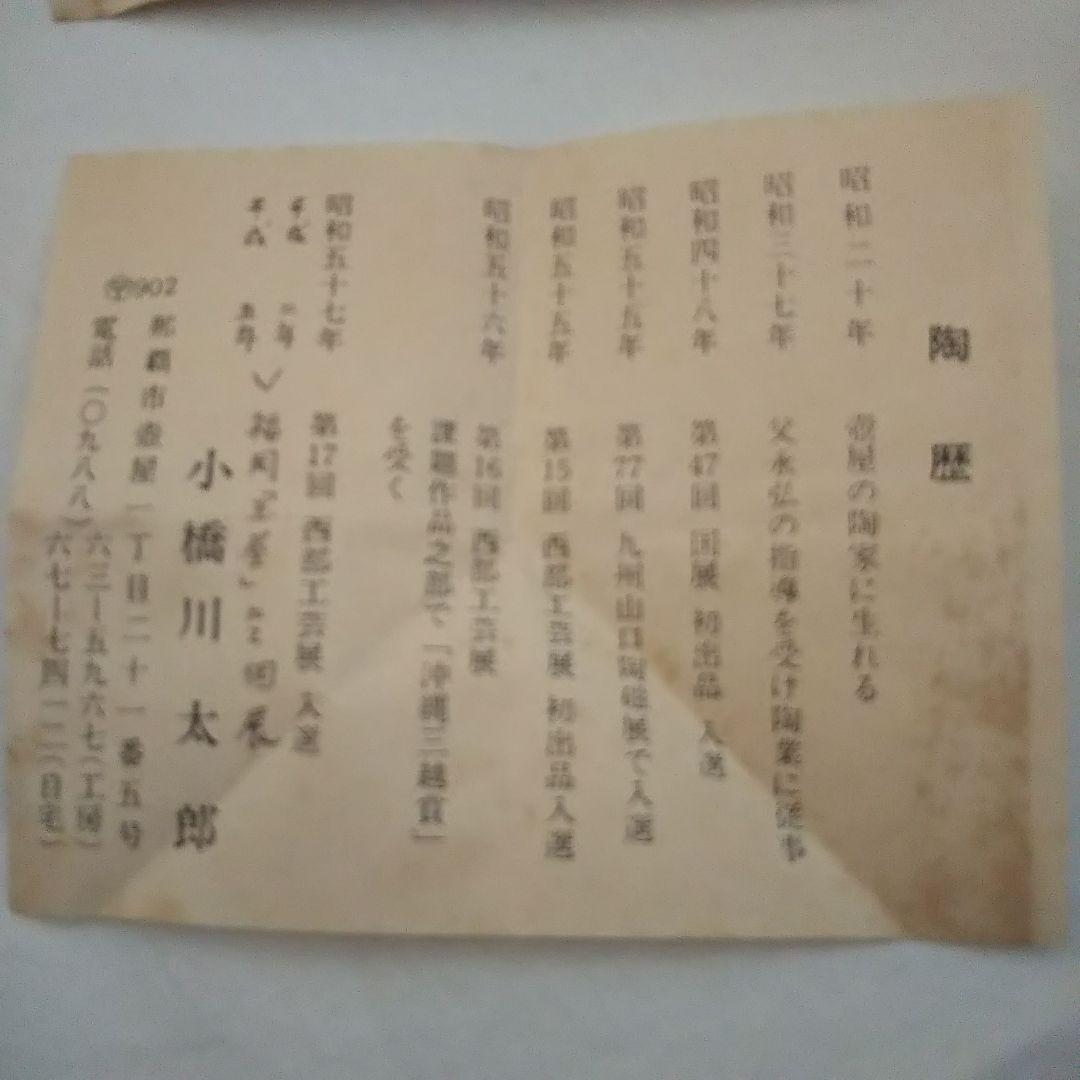 陶歴
昭和二十年 壺屋の陶家に生れる
昭和三十七年 父永弘の指導を受け陶業に従事
昭和四十八年 第47回 国展 初出品 入選
昭和五十五年 第77回 九州山口陶磁展で入選
昭和五十五年 第15回 西部工芸展 初出品入選
昭和五十六年 第16回 西部工芸展
課題作品之部で「沖縄三越賞」
を受く
昭和五十七年 第17回 西部工芸展 入選
平成 二年
平成 五年 福岡 個展
小橋川太郎
〒902 那覇市壺屋一丁目二十一番五号
電話(〇九八八)六三ー五九六七(工房)
六七ー七四一二(自宅)